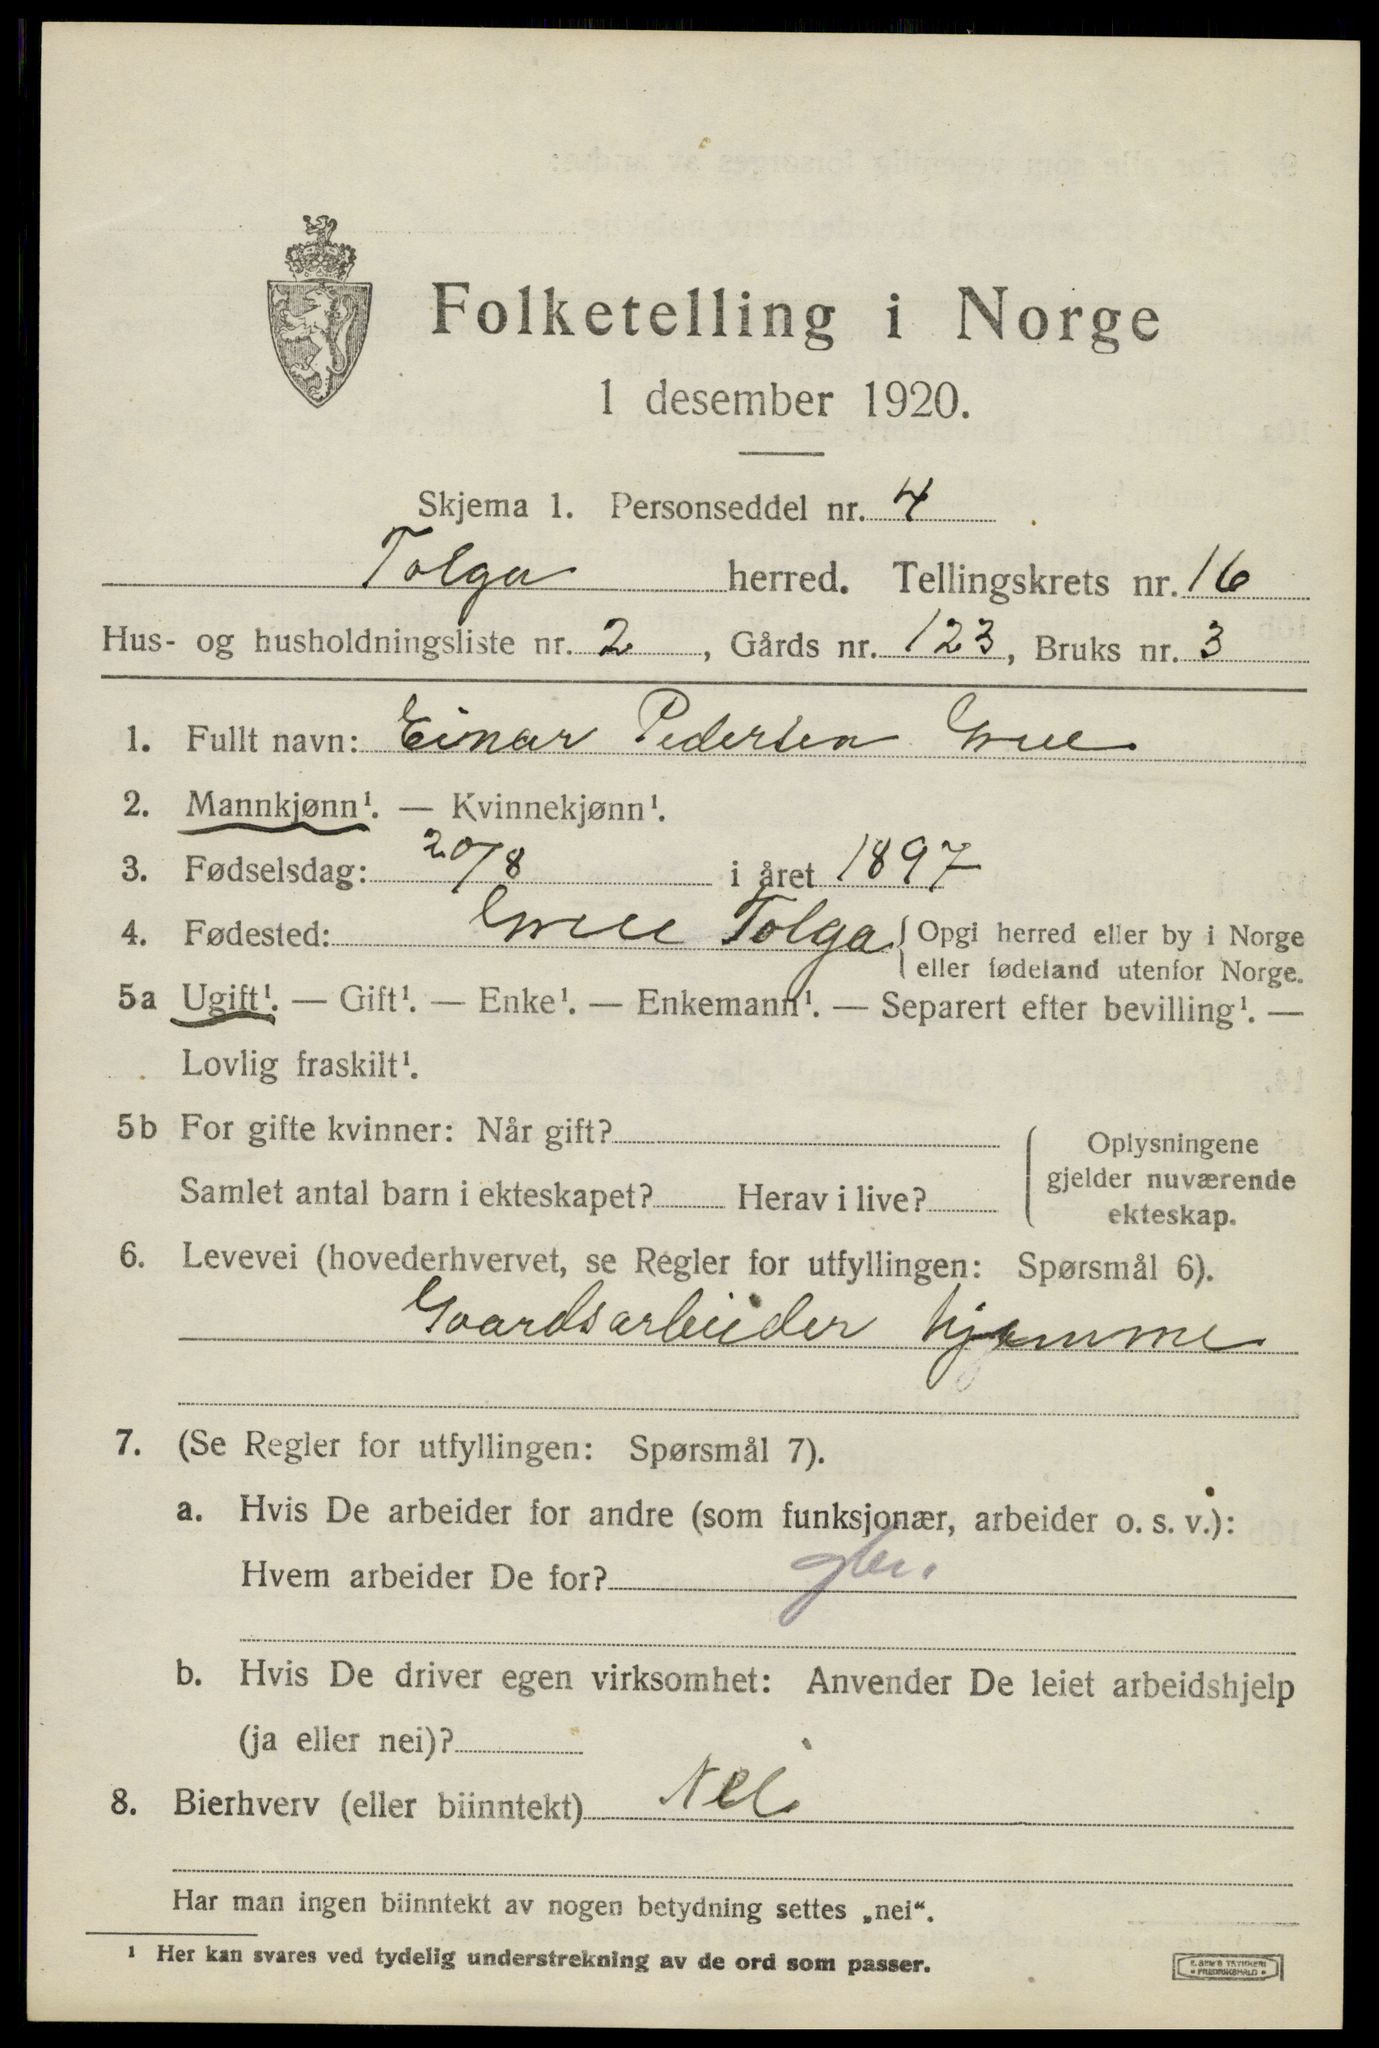 Folketelling i Norge
1 desember 1920.
Skjema 1. Personseddel nr. 4
Tolga herred. Tellingskrets nr. 16
Hus- og husholdningsliste nr. 2, Gårds nr. 123, Bruks nr. 3
1. Fullt navn: Einar Pedersen
2. Mannkjønn¹. — Kvinnekjønn¹.
3. Fødselsdag: 20/8 i året 1897
4. Fødested: Tolga { Opgi herred eller by i Norge
eller fødeland utenfor Norge.
5a Ugift¹. — Gift¹. — Enke¹. — Enkemann¹. — Separert efter bevilling¹. —
Lovlig fraskilt¹.
5b For gifte kvinner: Når gift?
Oplysningene
gjelder nuværende
ekteskap.
Samlet antal barn i ekteskapet? Herav i live?
6. Levevei (hovederhvervet, se Regler for utfyllingen: Spørsmål 6).
Gaardsarbeider hjemme
7. (Se Regler for utfyllingen: Spørsmål 7).
a. Hvis De arbeider for andre (som funksjonær, arbeider o. s. v.):
Hvem arbeider De for?
b. Hvis De driver egen virksomhet: Anvender De leiet arbeidshjelp
(ja eller nei)?
8. Bierhverv (eller biinntekt) Nei
Har man ingen biinntekt av nogen betydning settes „nei“.
¹ Her kan svares ved tydelig understrekning av de ord som passer.